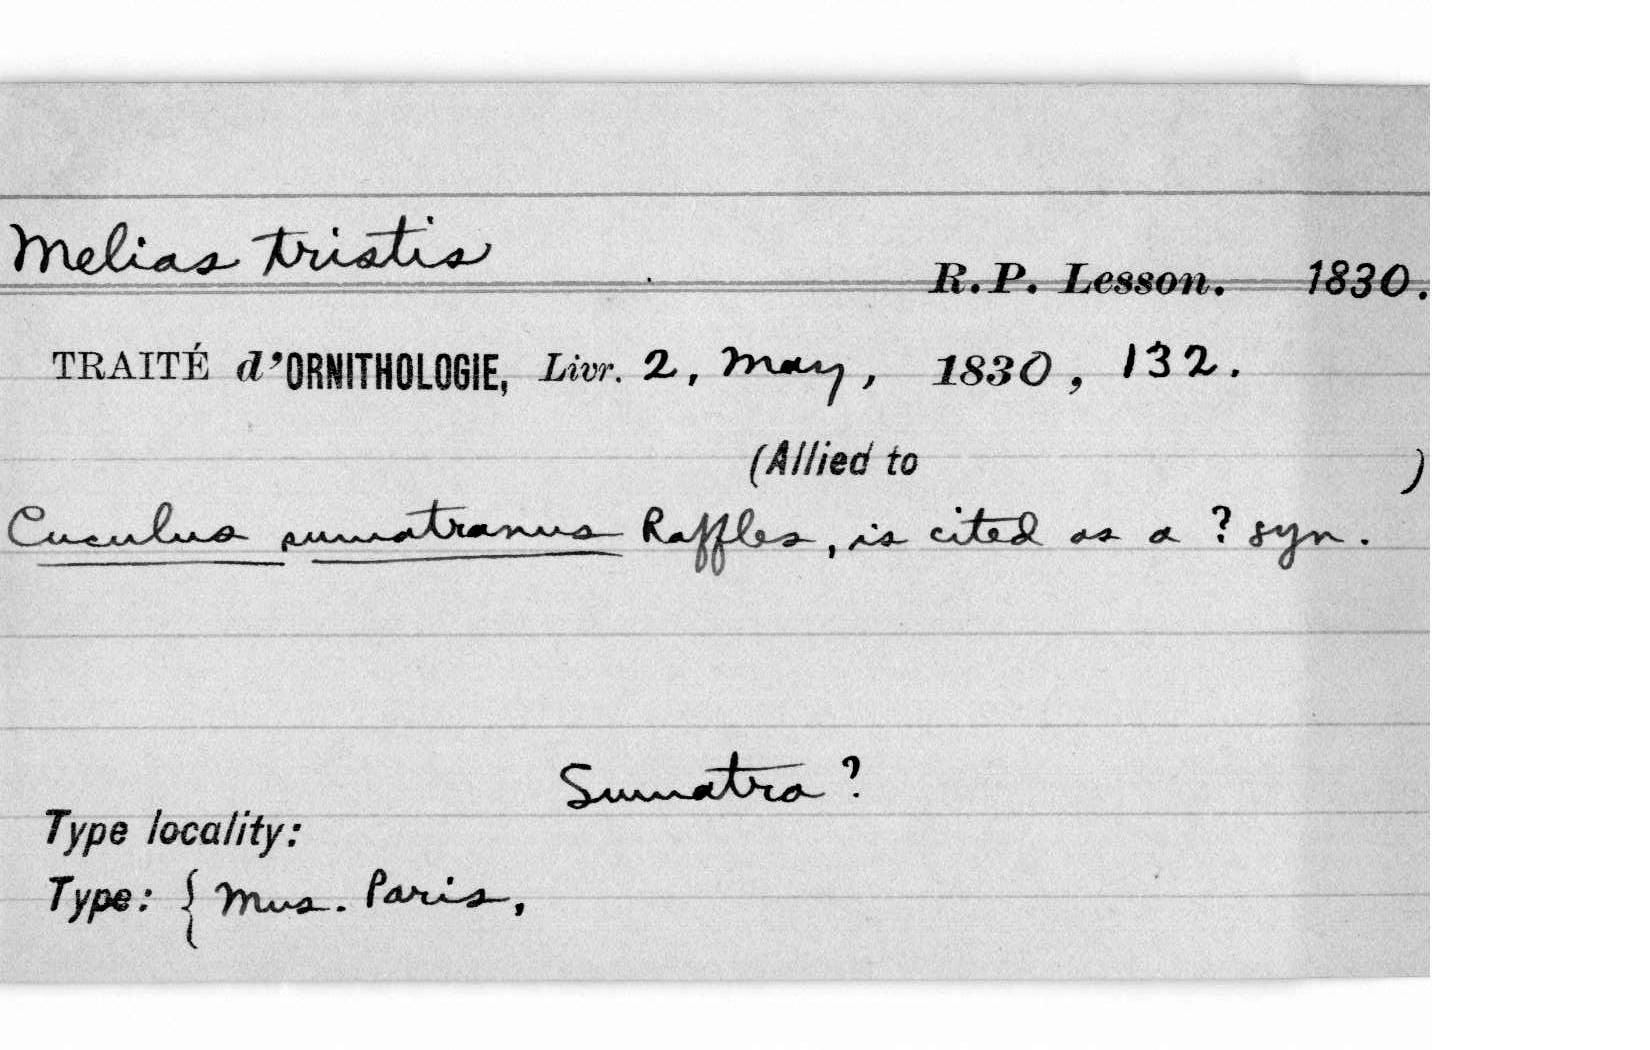 Melias tristis
R. P. Lesson. 1830.
TRAITÉ d'ORNITHOLOGIE, Livr. 2, May, 1830, 132.
(Allied to )
Cuculus sumatranus Raffles, is cited as a ? syn.
Sumatra ?
Type locality:
Type: { Mus. Paris,